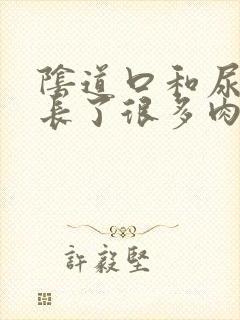 陰道口和尿
長了很多肉
許毅堅